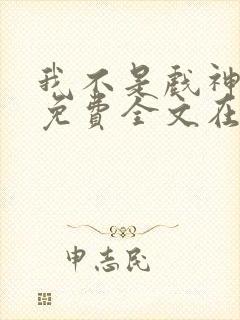 我不是戏神
免费全文在
申志民